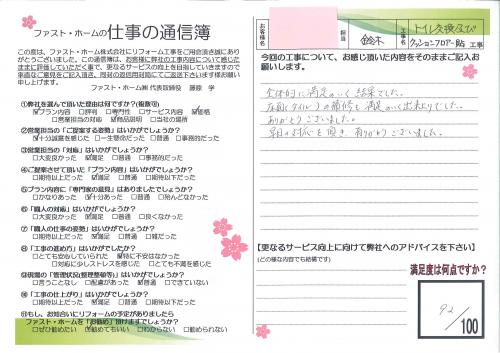 ファスト・ホームの仕事の通信簿
この度は、ファスト・ホーム株式会社にリフォーム工事をご用命頂き誠にあり
がとうございました。この通信簿は、お客様に弊社の工事内容について感じた
ままに評価していただく事で、更なるサービスの向上を目指していきますので
率直なご意見をご記入頂き、同封の返信用封筒にてご返送下さいます様お願い
申し上げます。
ファスト・ホーム㈱ 代表取締役 藤原 学
①弊社を選んで頂いた理由は何ですか?(複数可)
☑プラン内容 □評判 □専門性 ☑サービス内容 ☑価格
□営業担当者の対応 ☑商品説明 □当社の場所
②営業担当の「ご提案する姿勢」はいかがでしょうか?
☑十分誠意を感じた □一生懸命だった □普通 □事務的だった
③営業担当の「対応」はいかがでしょうか?
□大変良かった ☑満足 □普通 □事務的だった
④ご提案させて頂いた「プラン内容」はいかがでしょうか?
□期待以上だった ☑満足 □普通 □期待以下だった
⑤プラン内容に「専門家の意見」はありましたでしょうか?
□かなりあった ☑十分あった □普通 □殆んどなかった
⑥「職人の対応」はいかがでしょうか?
□大変良かった ☑満足 □普通 □良くなかった
⑦「職人の仕事の姿勢」はいかがでしょうか?
□期待以上だった ☑満足 □普通 □雑だった
⑧「工事の進め方」はいかがでしたか?
□とても安心していられた ☑特に不安はなかった
□対応に少しストレスを感じた □とても不満を感じた
⑨現場の「管理状況(整理整頓等)」はいかがでしょうか?
□言うことなし □配慮があった ☑普通 □できていない
⑩「工事の仕上がり」はいかがでしょうか?
□期待以上だった ☑満足 □普通 □期待以下だった
⑪もし、お知り合いにリフォームの予定がありましたら
ファスト・ホームを「お勧め」頂けますでしょうか?
□ぜひ勧めたい ☑勧めてもいい □わからない □勧められない
お客様名
担当 鈴木
工事名 トイレ交換及び
クッションフロアー貼 工事
今回の工事について、お感じ頂いた内容をそのままご記入お
願いします。
全体的に満足のいく結果でした。
ありがとうございました。
【更なるサービス向上に向けて弊社へのアドバイスを下さい】
(どの様な内容でも結構です)
満足度は何点ですか?
92
/100